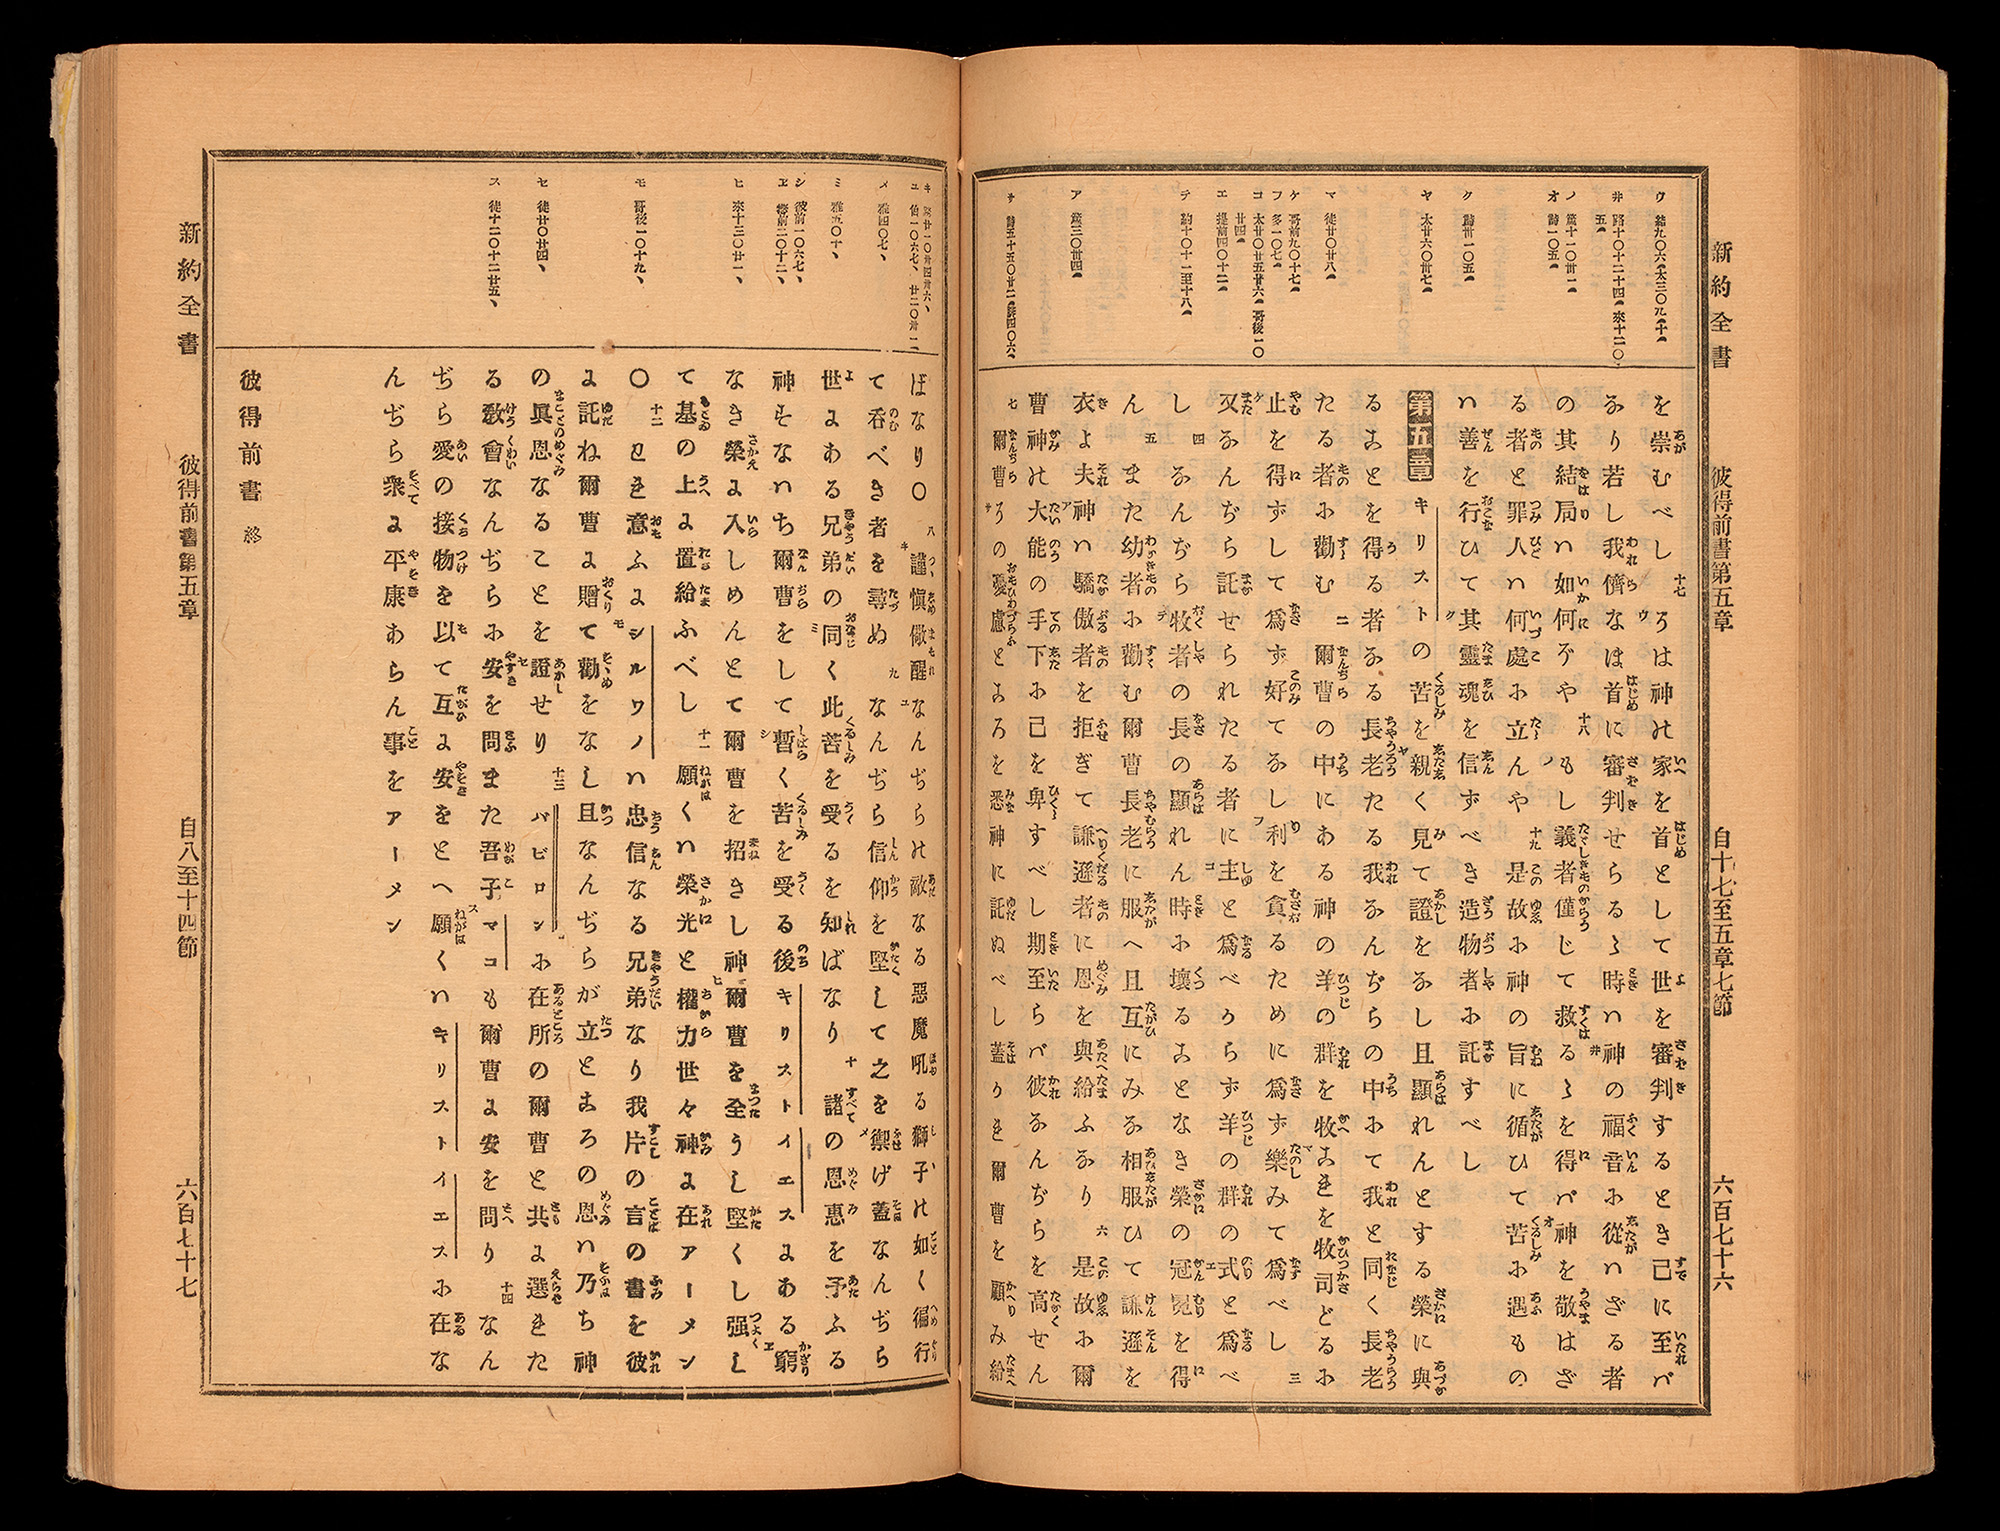 新約全書　彼得前書第五章　自十七至五章七節　六百七十六
ウ 結九〇六、太三〇九、十、
ヰ 路十〇十二十四、來十二〇
五、
ノ 箴十一〇卅一、
オ 詩一〇五、
ク 詩卅一〇五、
ヤ 太廿六〇卅七、
マ 徒廿〇廿八、
ケ 哥前九〇十七、
フ 多一〇七、
コ 太廿〇廿五廿六、哥後一〇
廿四、
エ 提前四〇十二、
テ 約十〇十一至十八、
ア 箴三〇卅四、
サ 詩五十五〇廿二、腓四〇六、
を崇むべし 十七 そは神の家を首として世を審判するとき已に至れバ
なり若し我儕なは首に審判せらるゝ時ハ神の福音に從ハざる者
の其結局ハ如何ぞや 十八 もし義者僅じて救るゝを得バ神を敬はざ
る者と罪人ハ何處に立んや 十九 是故に神の旨に循ひて苦に遇もの
ハ善を行ひて其靈魂を信ずべき造物者に託すべし
第五章 キリストの苦を親く見て證をなし且顯れんとする榮に與
ることを得る者なる長老たる我なんぢらの中にて我と同く長老
たる者に勸む 二 爾曹の中にある神の羊の群を牧これを牧司どるに
止を得ずして爲ず好てなし利を貪るために爲ず樂みて爲べし 三
又なんぢら託せられたる者に主と爲べからず羊の群の式と爲べ
し 四 なんぢら牧者の長の顯れん時に壞ることなき榮の冠冕を得
ん 五 また幼者に勸む爾曹長老に服へ且互にみな相服ひて謙遜を
衣よ夫神ハ驕傲者を拒ぎて謙遜者に恩を與給ふなり 六 是故に爾
曹神の大能の手下に己を卑すべし期至らバ彼なんぢらを高せん
七 爾曹その憂慮ところを悉神に託ぬべし蓋かれ爾曹を顧み給
ユ 伯一〇六七、廿二〇卅一、
メ 雅四〇七、
ミ 雅五〇十、
シ 彼前一〇六七、
ヱ 撒前二〇十二、
ヒ 來十三〇廿一、
モ 哥後一〇十九、
セ 徒廿〇廿四、
ス 徒十二〇十二廿五、
ばなり〇 八 謹愼儆醒なんぢらの敵なる惡魔吼る獅子の如く徧行
て呑べき者を尋ぬ 九 なんぢら信仰を堅して之を禦げ蓋なんぢら
世にある兄弟の同く此苦を受るを知ばなり 十 諸の恩惠を予ふる
神すなハち爾曹をして暫く苦を受る後キリストイエスにある窮
なき榮に入しめんとて爾曹を招きし神爾曹を全うし堅くし强し
て基の上に置給ふべし 十一 願くハ榮光と權力世々神に在アーメン
〇 十二 われ意ふにシルワノハ忠信なる兄弟なり我片の言の書を彼
に託ね爾曹に贈て勸をなし且なんぢらが立ところの恩ハ乃ち神
の眞恩なることを證せり 十三 バビロンに在所の爾曹と共に選れた
る敎會なんぢらに安を問また吾子マコも爾曹に安を問り 十四 なん
ぢら愛の接物を以て互に安をとへ願くハキリストイエスに在な
んぢら衆に平康あらん事をアーメン
彼得前書 終
新約全書　彼得前書第五章　自八至十四節　六百七十七